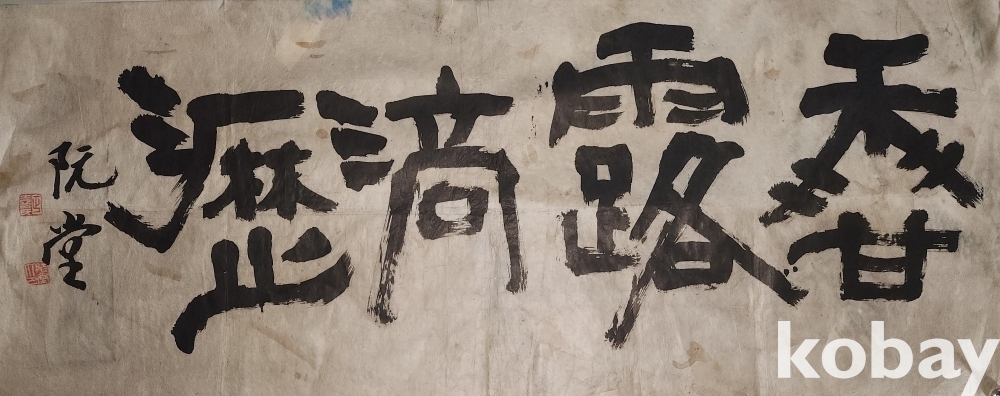 香露滴瀝
阮堂
kobay